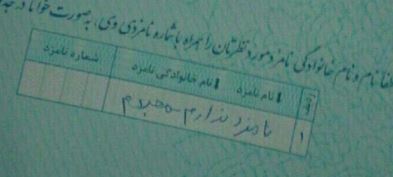 لطفا نام و نام خانوادگی نامزد مورد نظرتان را همراه با شماره نامزدی وی، به صورت خوانا در جد
نام نامزد / نام خانوادگی نامزد
شماره نامزد
۱
نامزد ندارم